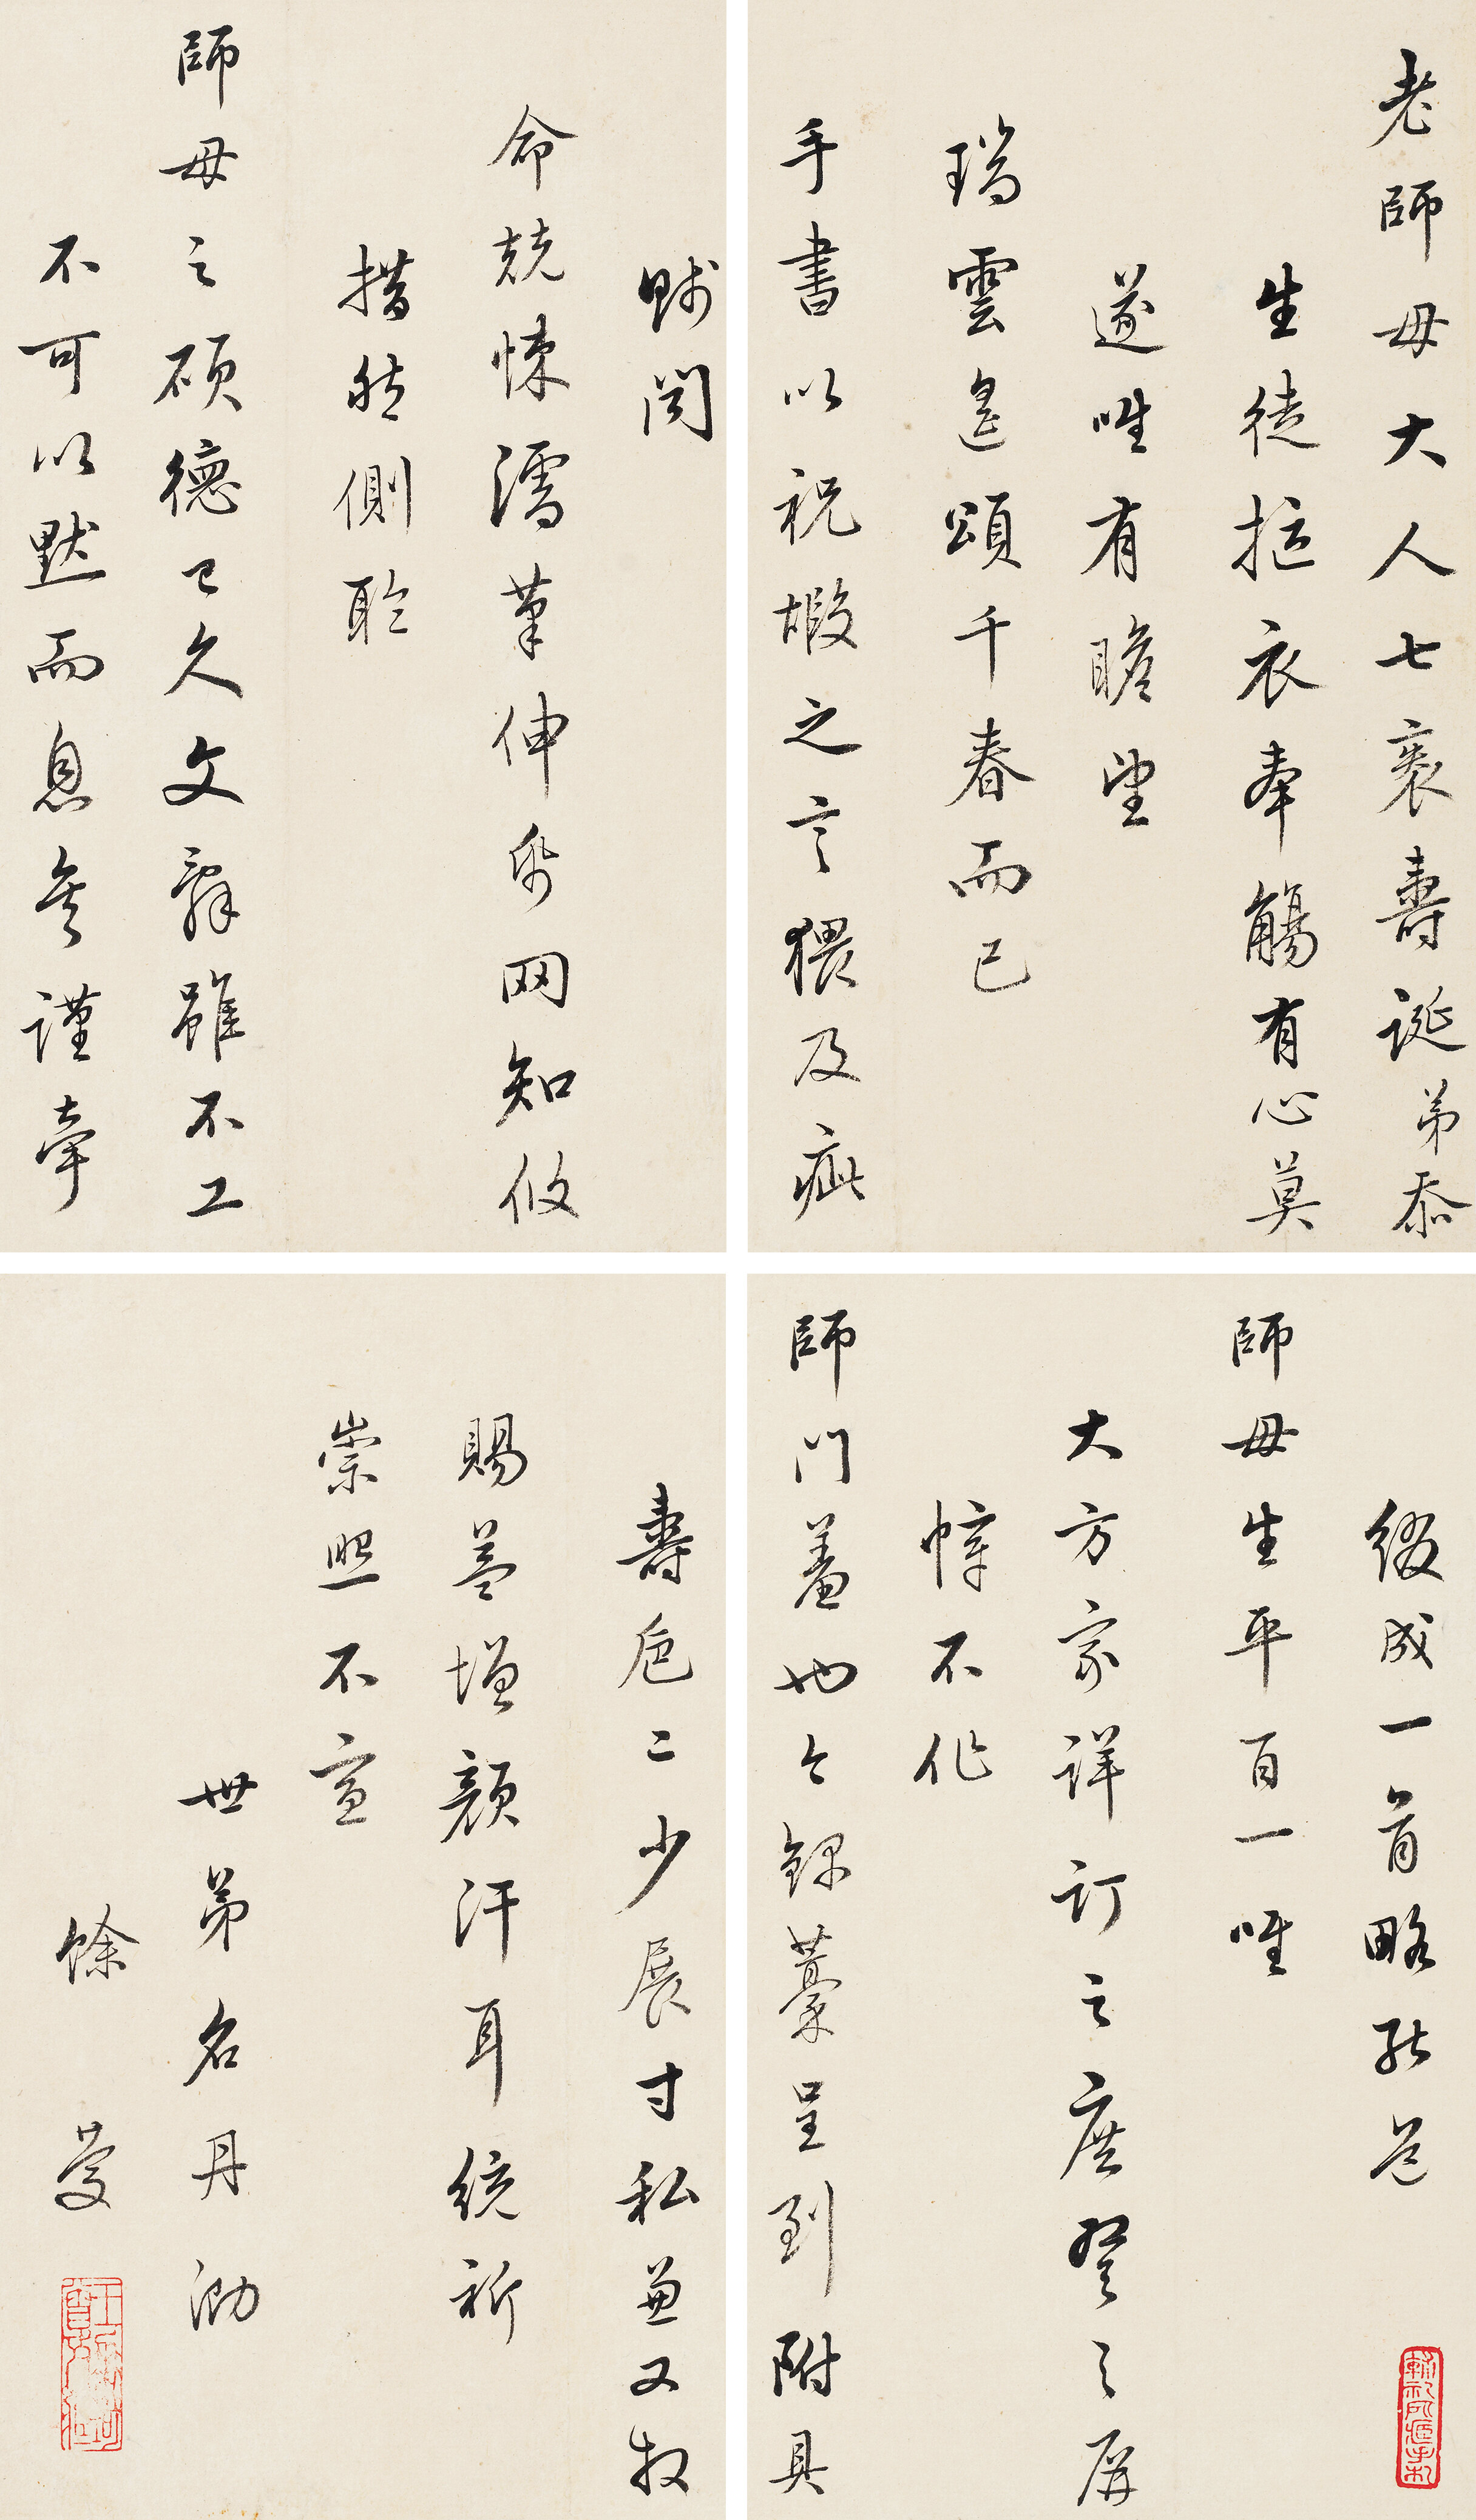 老師母大人七袠壽誕弟忝
生徒摳衣奉觴有心莫
遂唯有瞻望
瑞雲遙頌千春而已
手書以祝嘏之言猥及疵
賤聞
命兢悚濡筆伸紙罔知攸
措然側聆
師母之碩德已久文辭雖不工
不可以默而息矣謹牽
綴成一首略能道
師母生平百一唯
大方家詳訂之庶登之屏
幛不作
師門羞也今錄藁呈到附具
壽卮二少展寸私兼又拜
賜益增顏汗耳統祈
崇照不宣
世弟名丹泐
餘慶